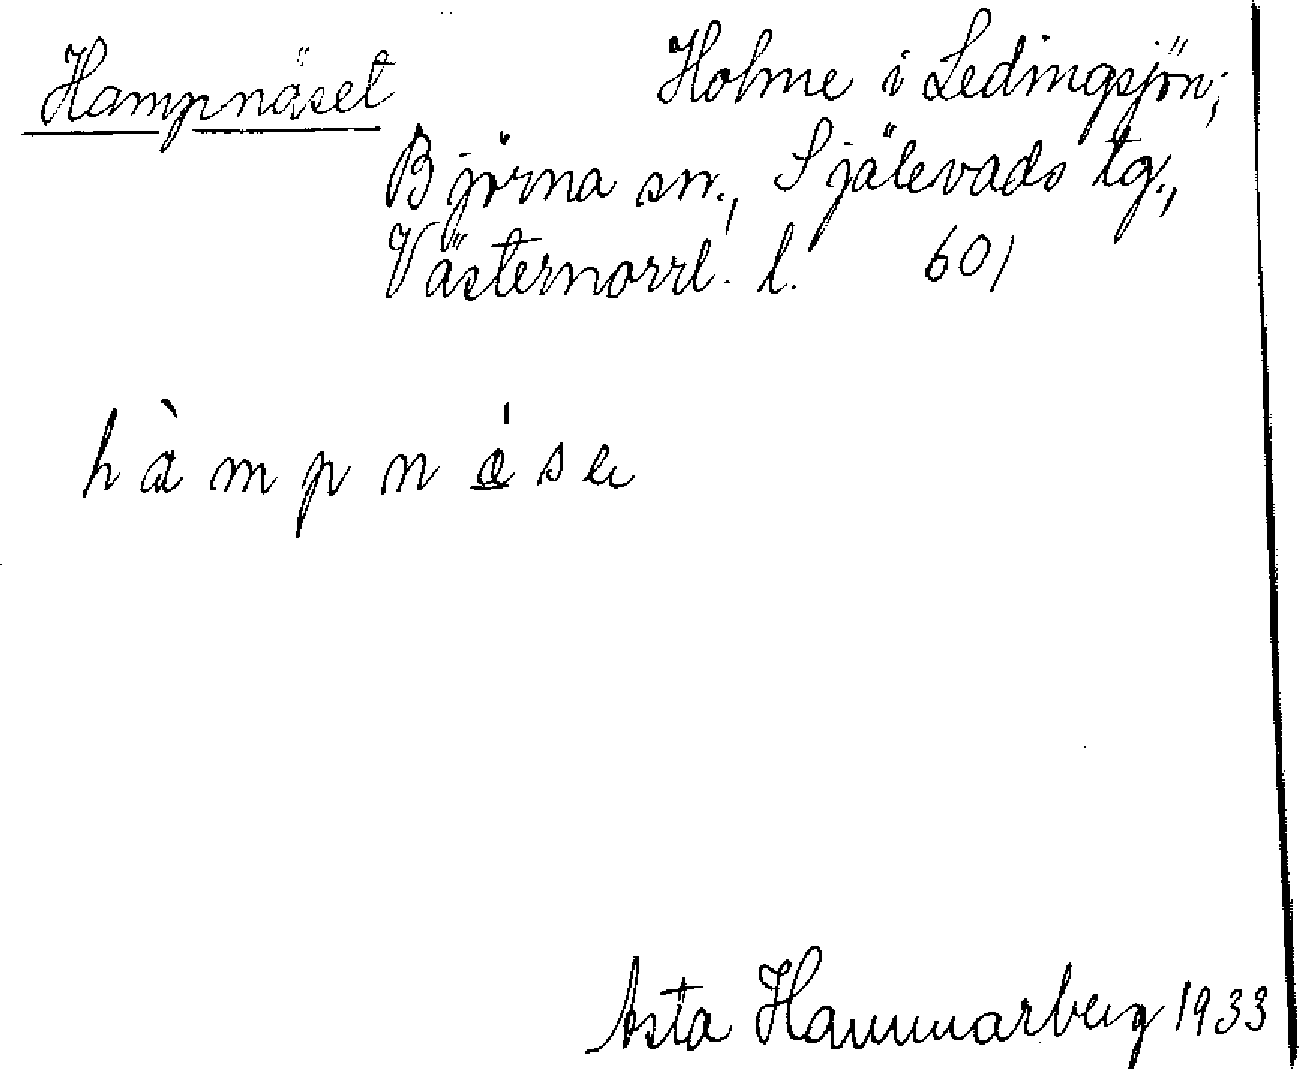 Hampnäset Holme i Ledingsjön;
Björna sn., Själevads tg.,
Västernorrl. l. 601
hàmpnáse
Asta Hammarberg 1933